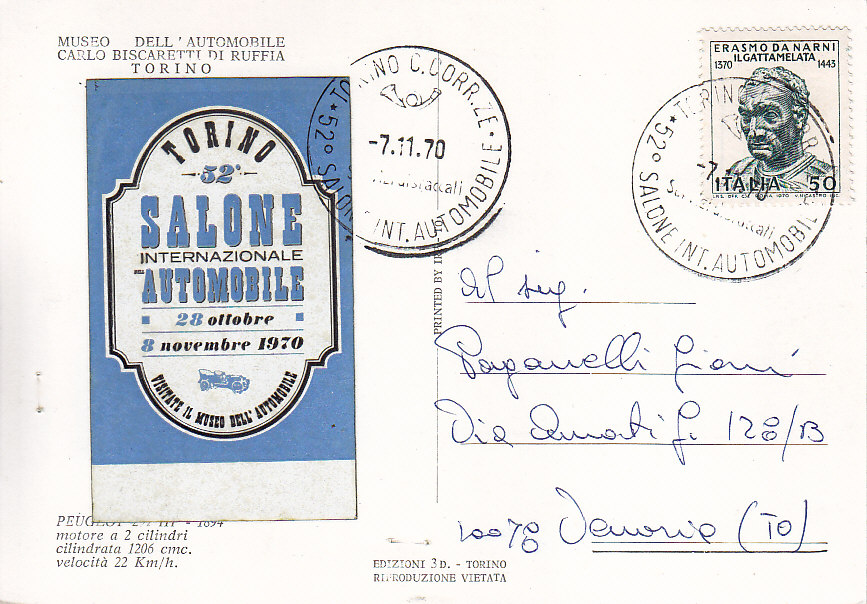 MUSEO DELL'AUTOMOBILE
CARLO BISCARETTI DI RUFFIA
TORINO
TORINO
52°
SALONE
INTERNAZIONALE
DELL'AUTOMOBILE
28 ottobre
8 novembre 1970
VISITATE IL MUSEO DELL'AUTOMOBILE
PEUGEOT - 1894
motore a 2 cilindri
cilindrata 1206 cmc.
velocità 22 Km/h.
TORINO C. CORR.ZE
-7.11.70
* 52° SALONE INT. AUTOMOBILE
PRINTED BY
ERASMO DA NARNI
IL GATTAMELATA
1370 1443
ITALIA 50
I.P.S. OFF. C.V. ROMA 1970
TORINO
-7.
* 52° SALONE INT. AUTOMOBIL
Al sig.
Paganelli Gianni
Via Amati G. 128/B
10078 Venaria (TO)
EDIZIONI 3D. - TORINO
RIPRODUZIONE VIETATA